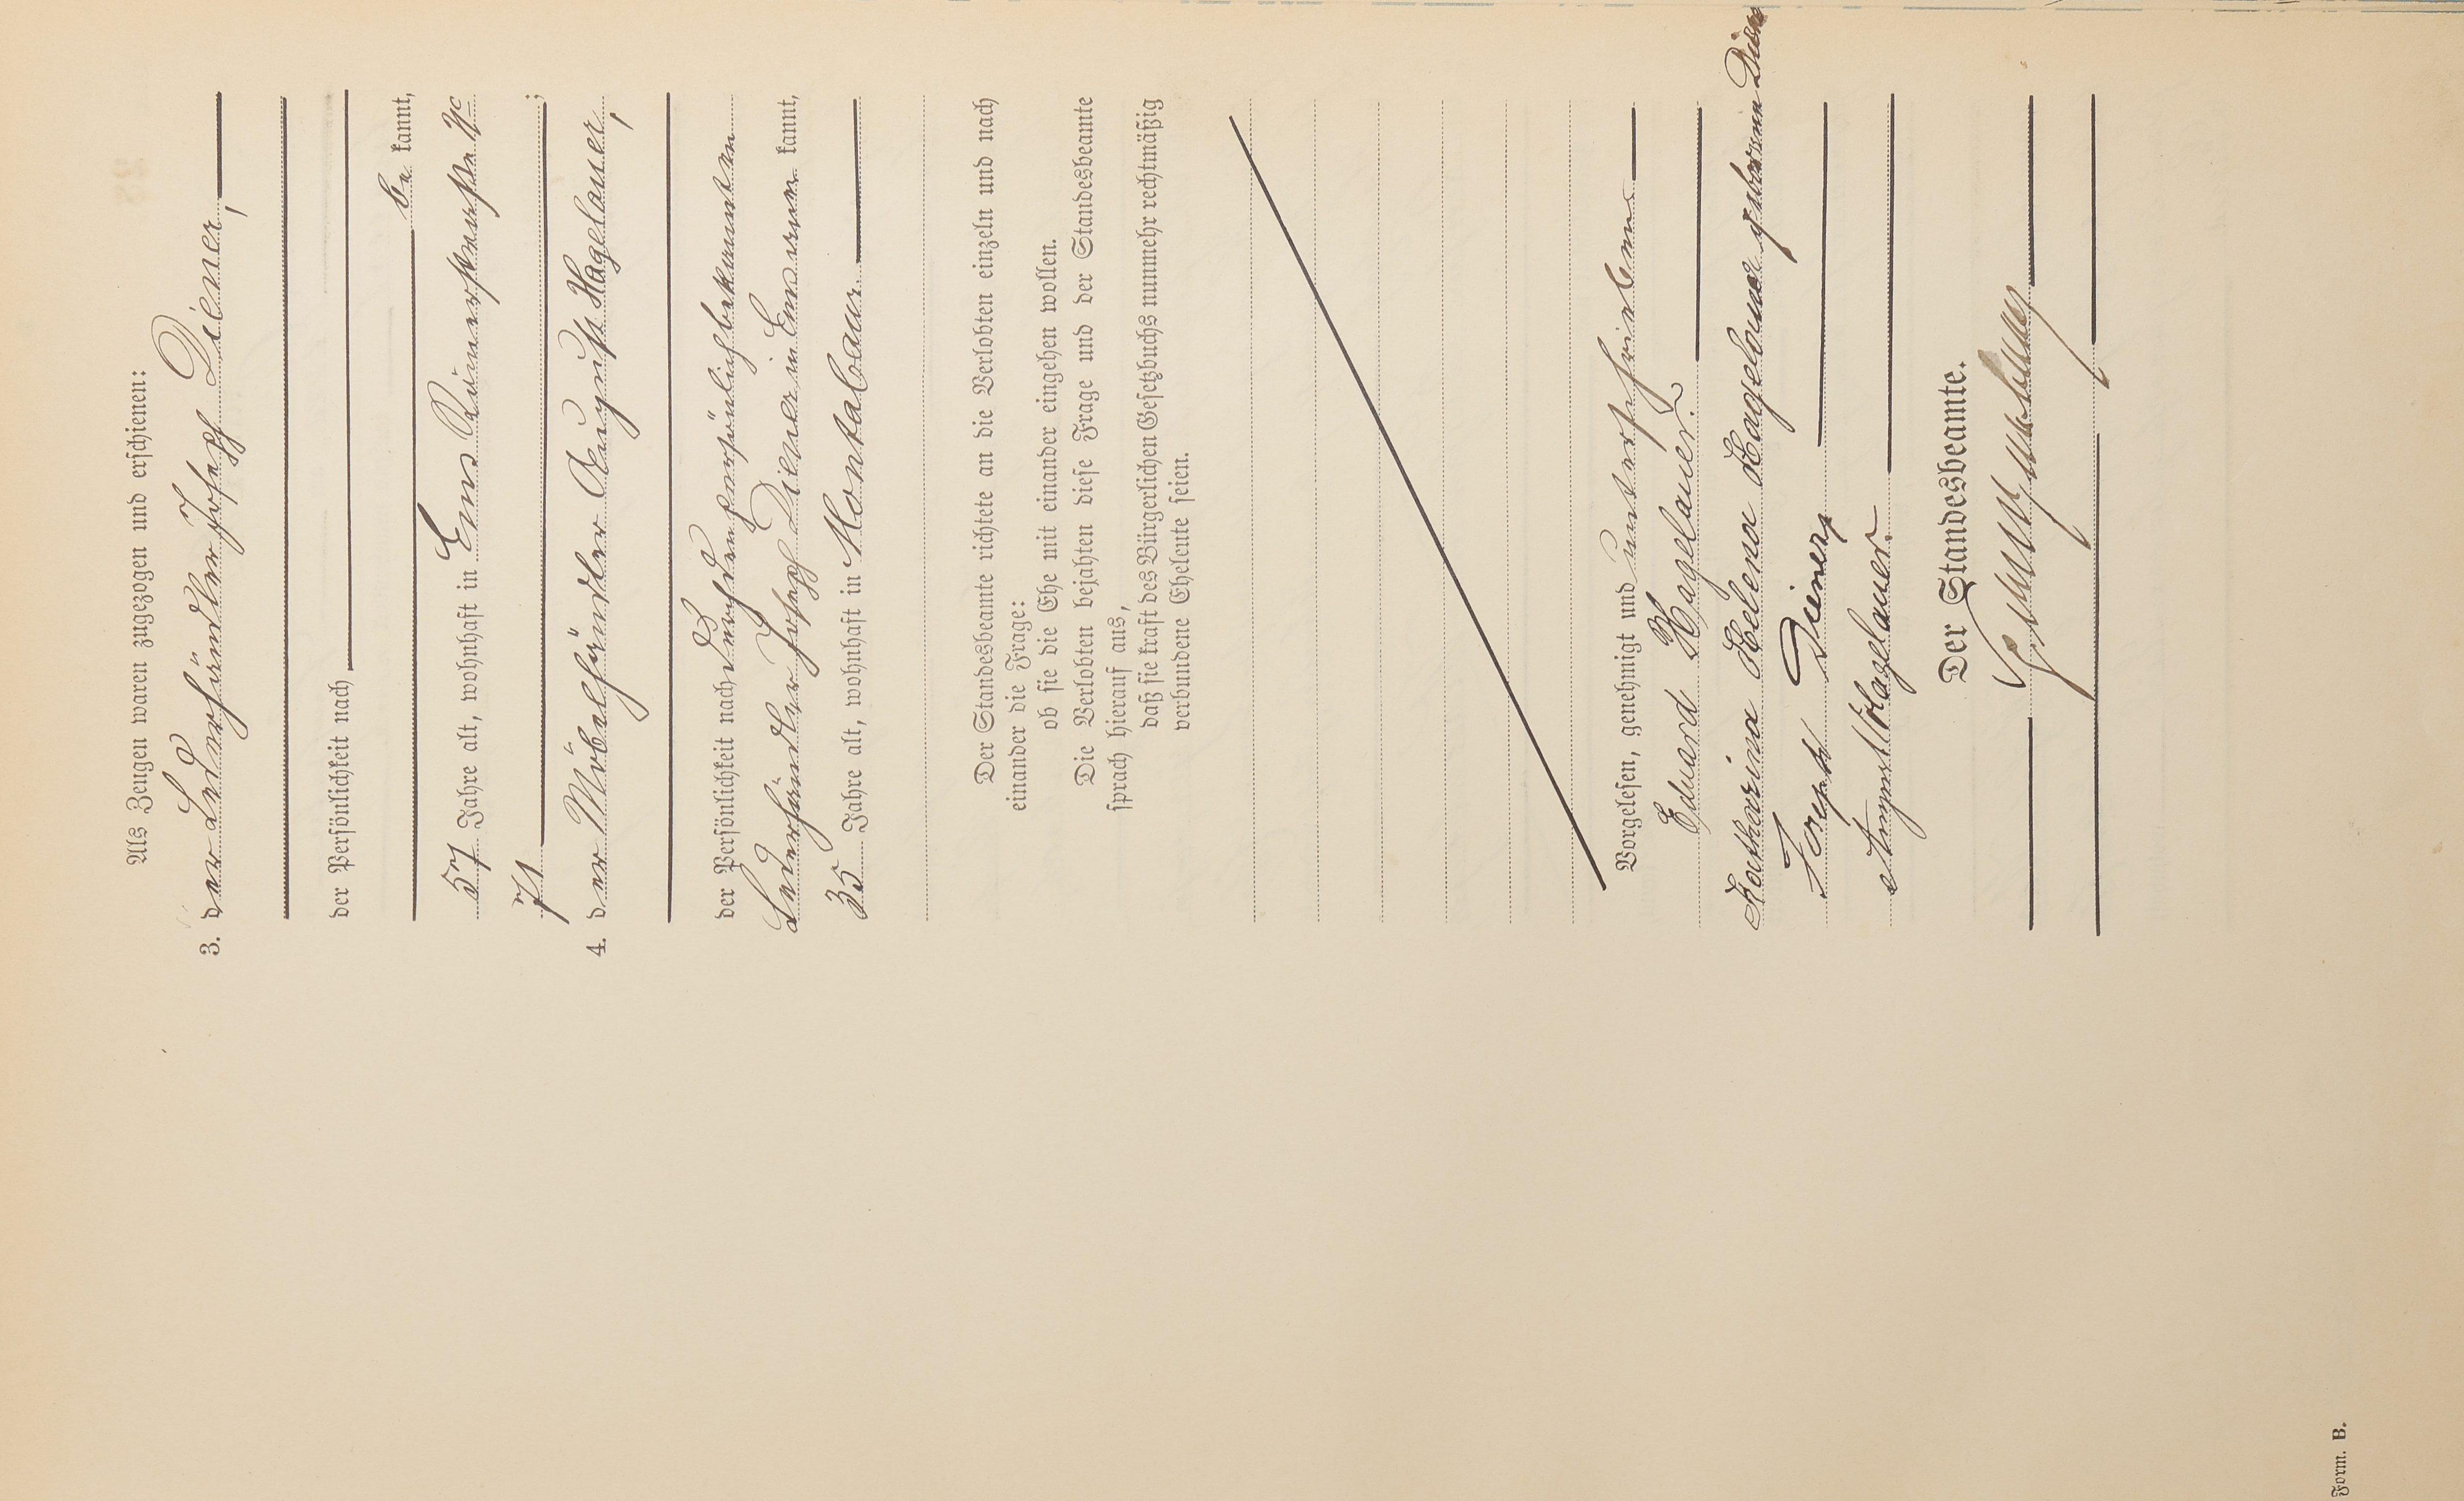 Als Zeugen waren zugezogen und erschienen:
3. der Lederhändler Joseph Diener,
der Persönlichkeit nach
be kannt,
57 Jahre alt, wohnhaft in Ems Römerstraße Nº
71 ;
4. der Möbelhändler August Hagelauer,
der Persönlichkeit nach durch den persönlich bekannten
Lederhändler Joseph Diener in Ems aner kannt,
35 Jahre alt, wohnhaft in Montabaur.
Der Standesbeamte richtete an die Verlobten einzeln und nach
einander die Frage:
ob sie die Ehe mit einander eingehen wollen.
Die Verlobten bejahten diese Frage und der Standesbeamte
sprach hierauf aus,
daß sie kraft des Bürgerlichen Gesetzbuchs nunmehr rechtmäßig
verbundene Eheleute seien.
Vorgelesen, genehmigt und unterschrieben
Eduard Hagelauer.
Katharina Helena Hagelauer geborene Diener
Joseph Diener
August Hagelauer.
Der Standesbeamte.
Form. B.